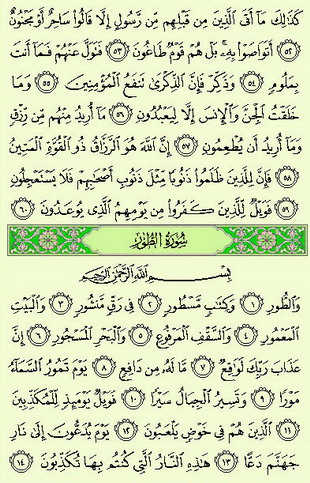 كَذَٰلِكَ مَآ أَتَى ٱلَّذِينَ مِن قَبۡلِهِم مِّن رَّسُولٍ إِلَّا قَالُواْ سَاحِرٌ أَوۡ مَجۡنُونٌ
٥٢ أَتَوَاصَوۡاْ بِهِۦۚ بَلۡ هُمۡ قَوۡمٞ طَاغُونَ ٥٣ فَتَوَلَّ عَنۡهُمۡ فَمَآ أَنتَ
بِمَلُومٖ ٥٤ وَذَكِّرۡ فَإِنَّ ٱلذِّكۡرَىٰ تَنفَعُ ٱلۡمُؤۡمِنِينَ ٥٥ وَمَا
خَلَقۡتُ ٱلۡجِنَّ وَٱلۡإِنسَ إِلَّا لِيَعۡبُدُونِ ٥٦ مَآ أُرِيدُ مِنۡهُم مِّن رِّزۡقٖ
وَمَآ أُرِيدُ أَن يُطۡعِمُونِ ٥٧ إِنَّ ٱللَّهَ هُوَ ٱلرَّزَّاقُ ذُو ٱلۡقُوَّةِ ٱلۡمَتِينُ
٥٨ فَإِنَّ لِلَّذِينَ ظَلَمُواْ ذَنُوبٗا مِّثۡلَ ذَنُوبِ أَصۡحَٰبِهِمۡ فَلَا يَسۡتَعۡجِلُونِ
٥٩ فَوَيۡلٞ لِّلَّذِينَ كَفَرُواْ مِن يَوۡمِهِمُ ٱلَّذِي يُوعَدُونَ ٦٠
سُورَةُ الطُّورِ
بِسۡمِ ٱللَّهِ ٱلرَّحۡمَٰنِ ٱلرَّحِيمِ
وَٱلطُّورِ ١ وَكِتَٰبٖ مَّسۡطُورٖ ٢ فِي رَقّٖ مَّنشُورٖ ٣ وَٱلۡبَيۡتِ
ٱلۡمَعۡمُورِ ٤ وَٱلسَّقۡفِ ٱلۡمَرۡفُوعِ ٥ وَٱلۡبَحۡرِ ٱلۡمَسۡجُورِ ٦ إِنَّ
عَذَابَ رَبِّكَ لَوَٰقِعٞ ٧ مَّا لَهُۥ مِن دَافِعٖ ٨ يَوۡمَ تَمُورُ ٱلسَّمَآءُ
مَوۡرٗا ٩ وَتَسِيرُ ٱلۡجِبَالُ سَيۡرٗا ١٠ فَوَيۡلٞ يَوۡمَئِذٖ لِّلۡمُكَذِّبِينَ
١١ ٱلَّذِينَ هُمۡ فِي خَوۡضٖ يَلۡعَبُونَ ١٢ يَوۡمَ يُدَعُّونَ إِلَىٰ نَارِ
جَهَنَّمَ دَعًّا ١٣ هَٰذِهِ ٱلنَّارُ ٱلَّتِي كُنتُم بِهَا تُكَذِّبُونَ ١٤